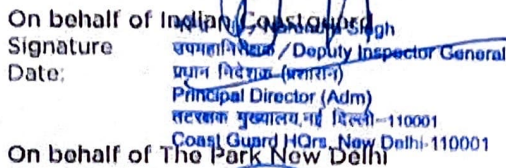 On behalf of Indian Coastguard
Singh
Signature
उपमहानिरीक्षक / Deputy Inspector General
Date:
प्रधान निदेशक (प्रशासन)
Principal Director (Adm)
तटरक्षक मुख्यालय, नई दिल्ली-110001
Coast Guard HQrs, New Delhi-110001
On behalf of The Park New Delhi